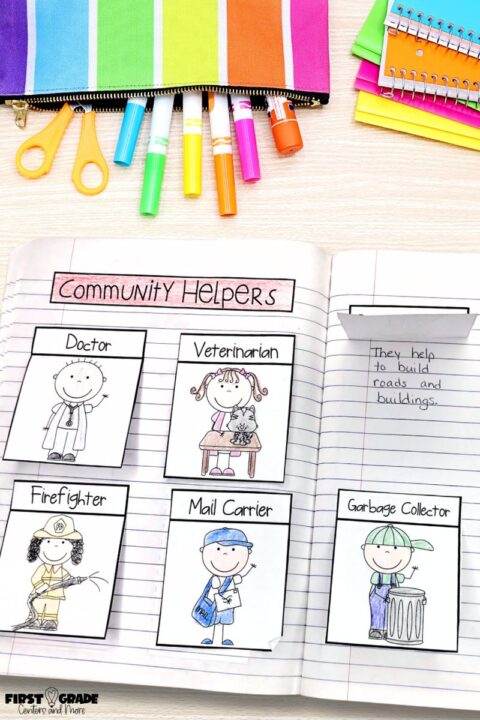 Community Helpers
Doctor
Veterinarian
They help
to build
roads and
buildings.
Firefighter
Mail Carrier
Garbage Collector
MAIL
FIRST GRADE
Centers and More